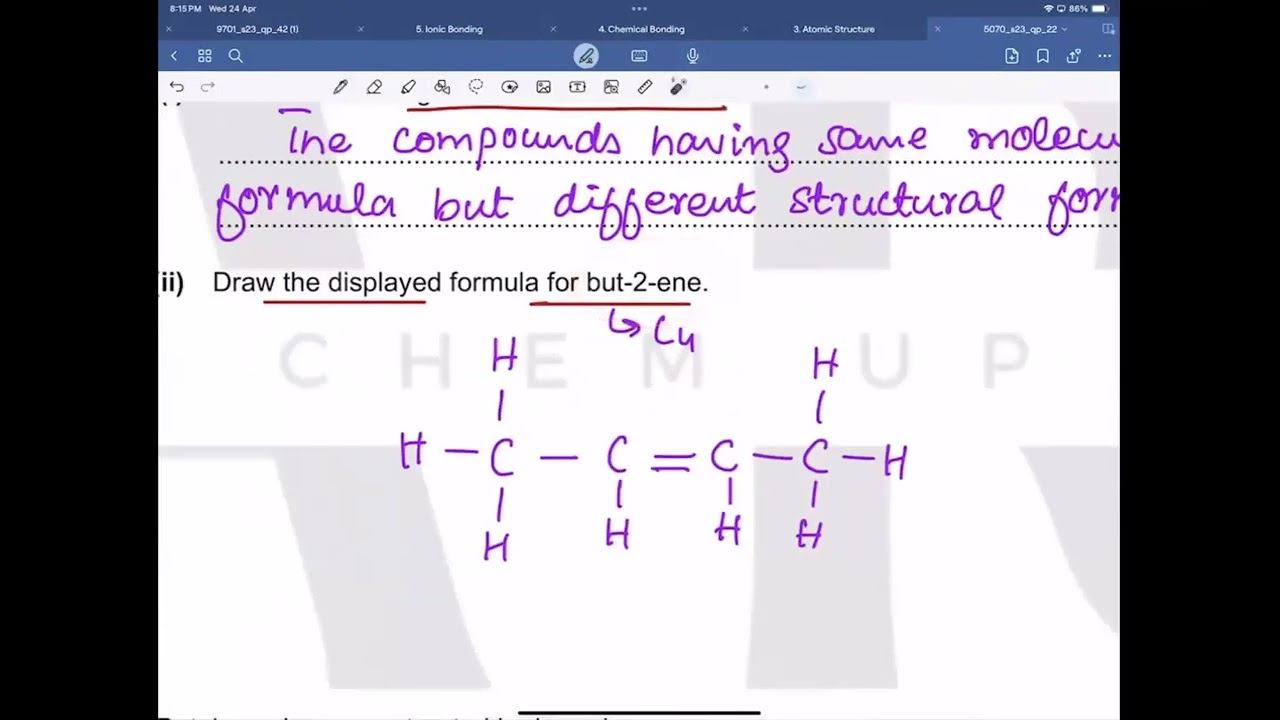 8:15 PM Wed 24 Apr
86%
9701_s23_qp_42 (1)
5. Ionic Bonding
4. Chemical Bonding
3. Atomic Structure
5070_s23_qp_22
The compounds having same molecu
formula but different structural for
(ii) Draw the displayed formula for but-2-ene.
↳ C4
CHEM UP
H H
H – C – C = C – C – H
H H H H